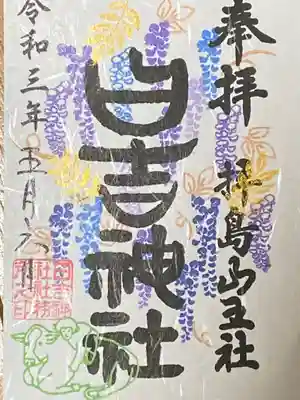 奉拝 拝島山王社
日吉神社
令和三年五月六日